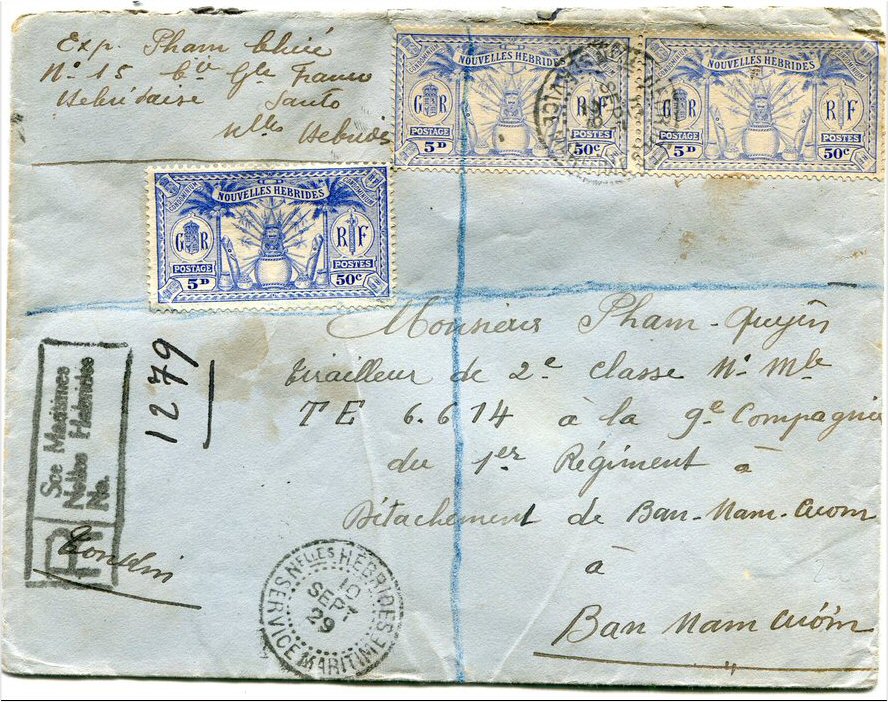 Exp. Pham Chúc
No 15 Cie Gle Franco
Hebridaise Santo
Nlles Hebrides
NOUVELLES HEBRIDES
CONDOMINIUM
G R
R F
POSTAGE
POSTES
5D
50c
NOUVELLES HEBRIDES
CONDOMINIUM
G R
R F
POSTAGE
POSTES
5D
50c
NOUVELLES HEBRIDES
CONDOMINIUM
G R
R F
POSTAGE
POSTES
5D
50c
Monsieur Pham-Quyîn
Tirailleur de 2e classe No Mle
TE 6.614 à la 9e Compagnie
du 1er Régiment à
Détachement de Ban-Nam-Cuom
à
Ban Nam Cuóm
R
Sce Maritimes
Nelles Hebrides
No.
1279
Tonkin
Nlles HEBRIDES
10
SEPT
29
SERVICE MARITIME